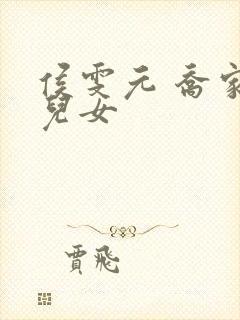 侯雯元 喬家
兒女
賈飛